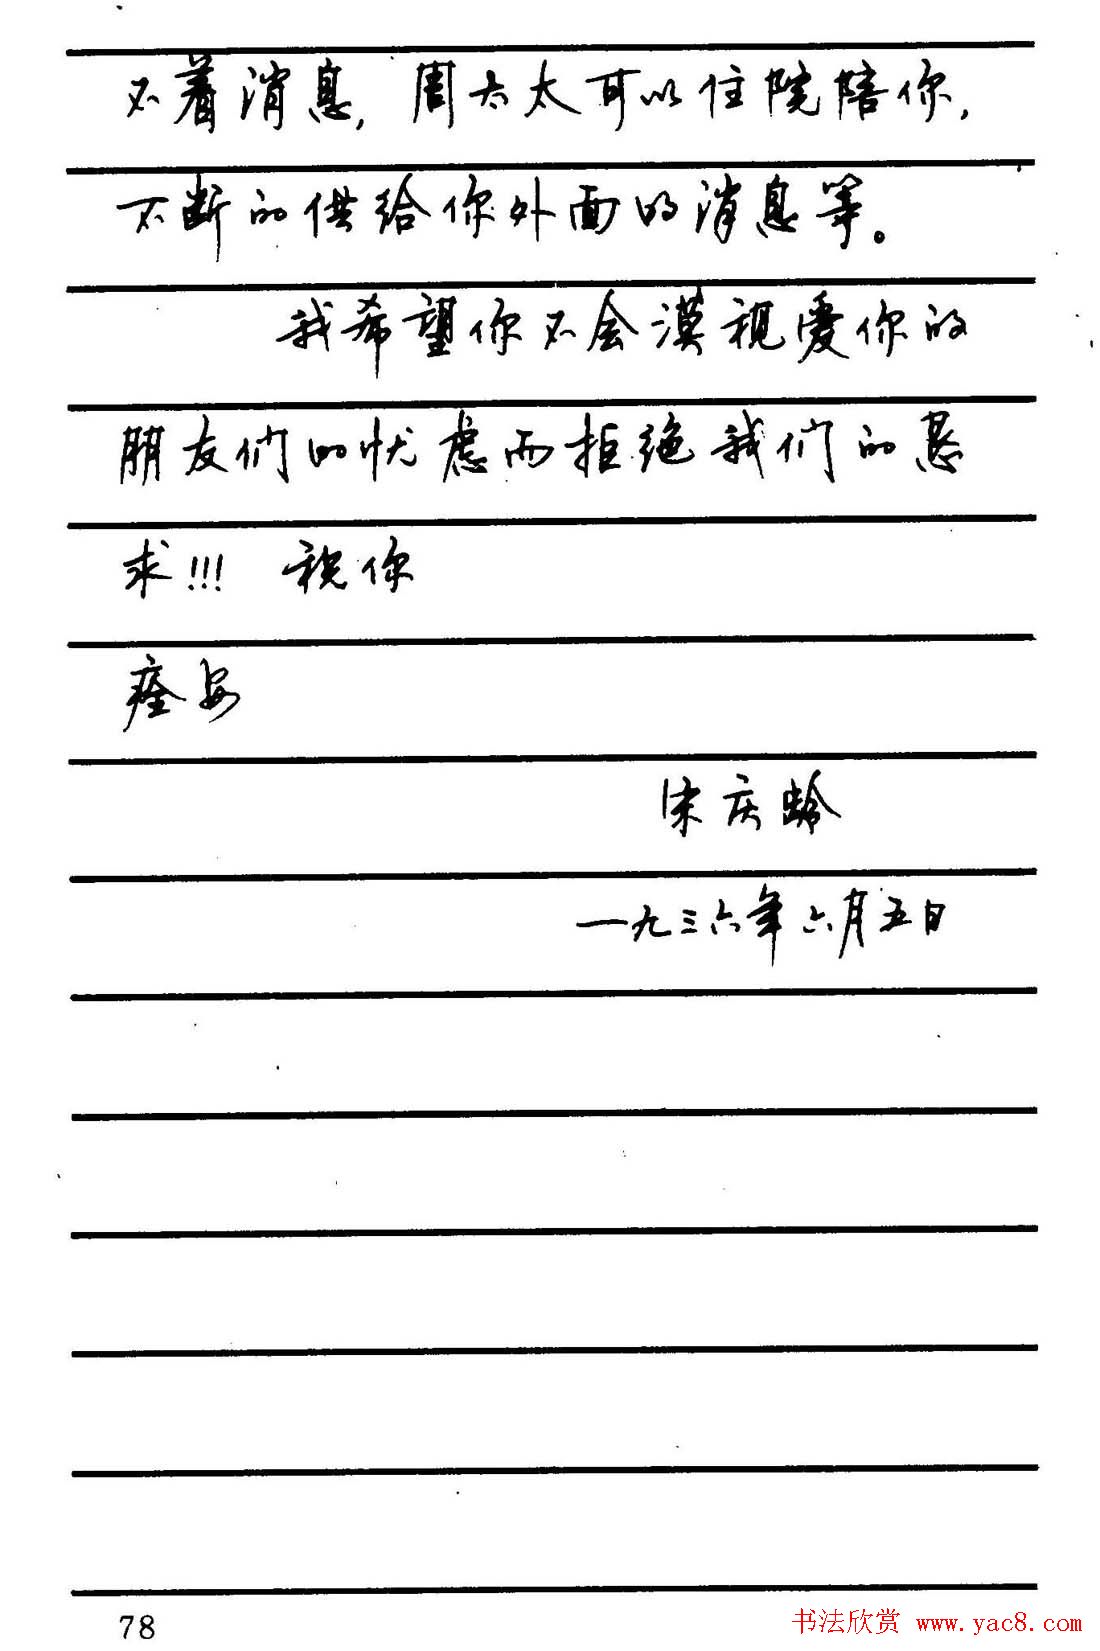 不着消息，周太太可以住院陪你，
不断的供给你外面的消息等。
我希望你不会漠视爱你的
朋友们的忧虑而拒绝我们的恳
求!!! 祝你
痊安
宋庆龄
一九三六年六月五日
78
书法欣赏 www.yac8.com